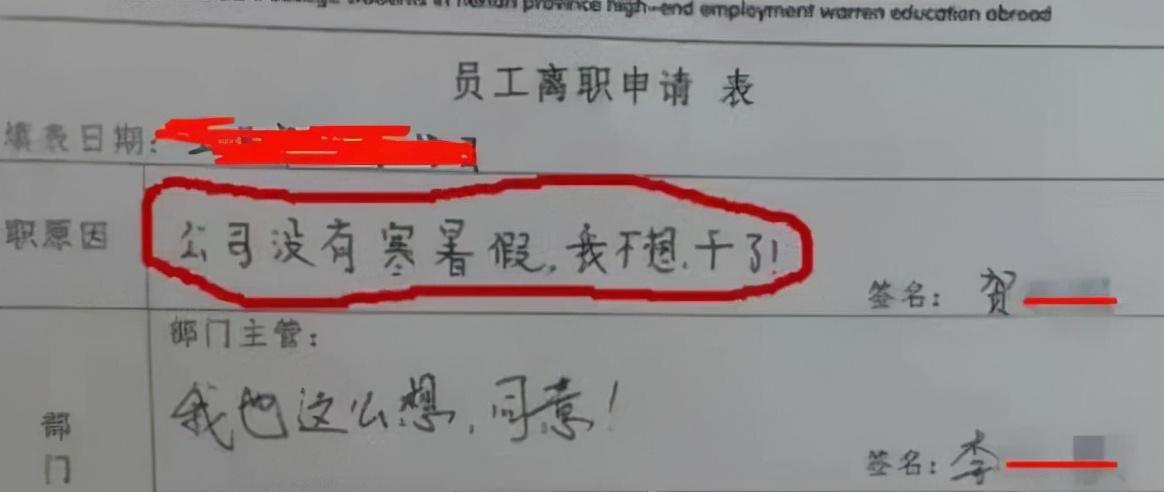 province high-end employment warren education abroad
员工离职申请 表
填表日期:
职原因
公司没有寒暑假,我不想.干了!
签名: 贺
部门主管:
我也这么想,同意!
部门
签名: 李